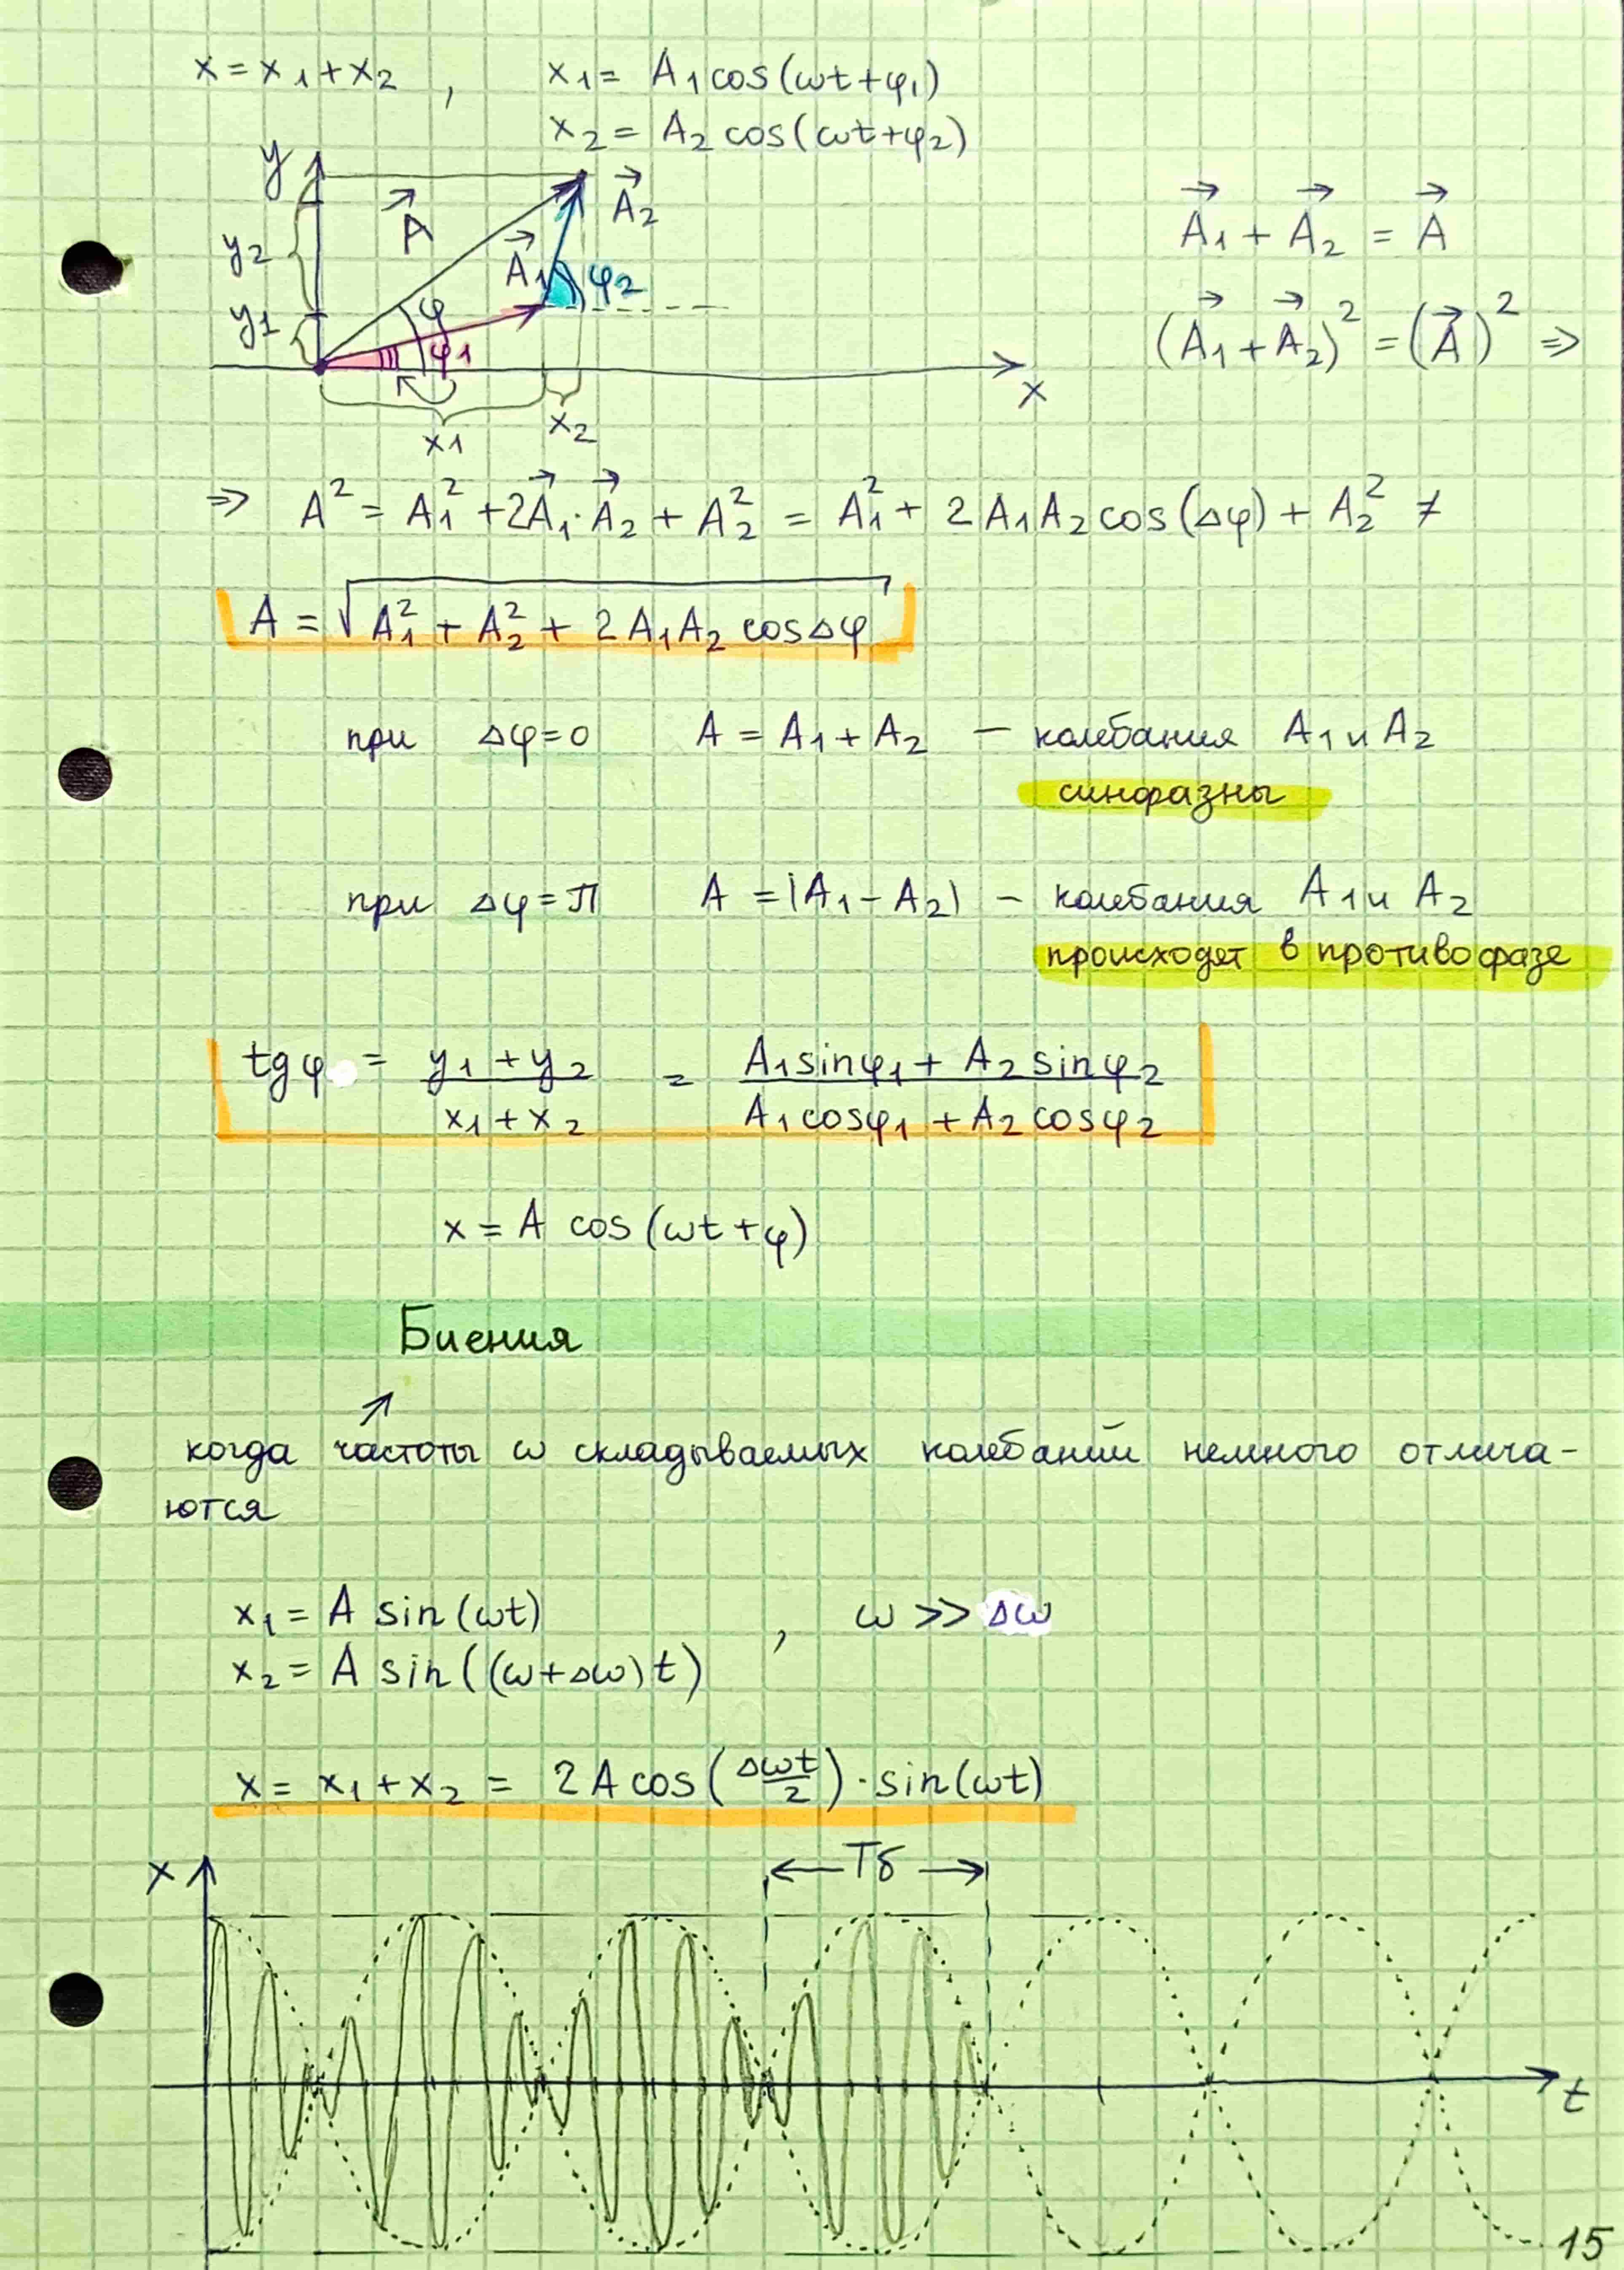 x = x₁ + x₂ , x₁ = A₁ cos(ωt + φ₁)
x₂ = A₂ cos(ωt + φ₂)
y
A⃗
A⃗₂
y₂
A⃗₁
φ₂
φ
y₁
φ₁
x
x₁
x₂
A⃗₁ + A⃗₂ = A⃗
(A⃗₁ + A⃗₂)² = (A⃗)² ⇒
⇒ A² = A₁² + 2A⃗₁·A⃗₂ + A₂² = A₁² + 2A₁A₂ cos(Δφ) + A₂² ≠
A = √(A₁² + A₂² + 2A₁A₂ cosΔφ)
при Δφ = 0 A = A₁ + A₂ — колебания A₁ и A₂
синфазны
при Δφ = π A = |A₁ - A₂| — колебания A₁ и A₂
происходят в противофазе
tgφ = (y₁ + y₂)/(x₁ + x₂) = (A₁sinφ₁ + A₂ sinφ₂)/(A₁cosφ₁ + A₂cosφ₂)
x = A cos(ωt + φ)
Биения
когда частоты ω складываемых колебаний немного отлича-
ются
x₁ = A sin(ωt) , ω >> Δω
x₂ = A sin((ω+Δω)t)
x = x₁ + x₂ = 2A cos(Δωt/2) · sin(ωt)
x
Tб
t
15